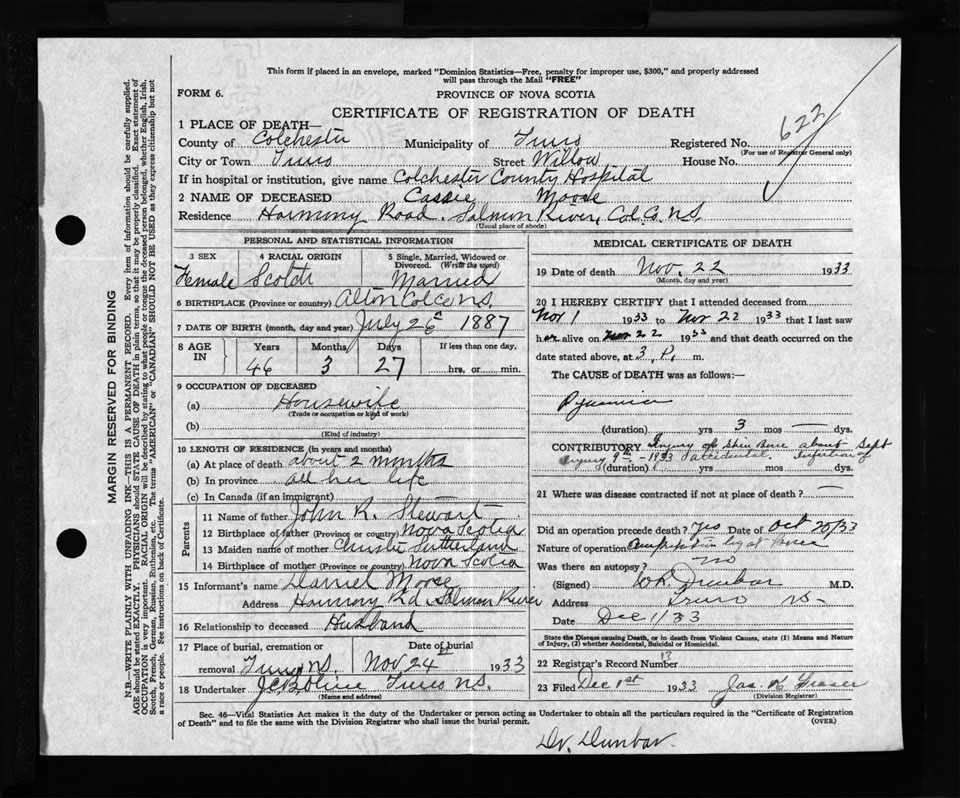 This form if placed in an envelope, marked "Dominion Statistics—Free, penalty for improper use, $300," and properly addressed
will pass through the Mail "FREE"
FORM 6.
PROVINCE OF NOVA SCOTIA
CERTIFICATE OF REGISTRATION OF DEATH
622
1 PLACE OF DEATH—
County of Colchester Municipality of Truro Registered No.
(For use of Registrar General only)
City or Town Truro Street Willow House No.
If in hospital or institution, give name Colchester County Hospital
2 NAME OF DECEASED Cassie Moose
Residence Harmony Road. Salmon River, Col. Co. N.S.
(Usual place of abode)
PERSONAL AND STATISTICAL INFORMATION
3 SEX 4 RACIAL ORIGIN 5 Single, Married, Widowed or Divorced. (Write the word)
Female Scotch Married
6 BIRTHPLACE (Province or country) Alton Col Co N.S.
7 DATE OF BIRTH (month, day and year) July 26 1887
8 AGE IN Years Months Days If less than one day,
46 3 27 hrs. or min.
9 OCCUPATION OF DECEASED
(a) Housewife
(Trade or occupation or kind of work)
(b)
(Kind of industry)
10 LENGTH OF RESIDENCE (in years and months)
(a) At place of death about 2 months
(b) In province all her life
(c) In Canada (if an immigrant)
Parents
11 Name of father John K. Stewart
12 Birthplace of father (Province or country) Nova Scotia
13 Maiden name of mother Christie Sutherland
14 Birthplace of mother (Province or country) Nova Scotia
15 Informant's name Daniel Moose
Address Harmony Rd Salmon River
16 Relationship to deceased Husband
17 Place of burial, cremation or Date of burial
removal Truro N.S. Nov 24 1933
18 Undertaker Truro N.S.
(Name and address)
MEDICAL CERTIFICATE OF DEATH
19 Date of death Nov, 22 1933
(Month, day and year)
20 I HEREBY CERTIFY that I attended deceased from
Nov 1 1933 to Nov 22 1933 that I last saw
her alive on Nov 22 1933 and that death occurred on the
date stated above, at 3 P. m.
The CAUSE of DEATH was as follows:—
Pyaemia
(duration) yrs 3 mos — dys.
CONTRIBUTORY Injury to Shin Bone about Sept
injury 9th - 1933 accidental. Infection of
(duration) yrs mos dys.
21 Where was disease contracted if not at place of death? —
Did an operation precede death? Yes Date of Oct 20/33
Nature of operation Amputation leg at knee
Was there an autopsy? no
(Signed) Dunbar M.D.
Address Truro N.S.
Date Dec 1/33
State the Disease causing Death, or in death from Violent Causes, state (1) Means and Nature
of Injury, (2) whether Accidental, Suicidal or Homicidal.
22 Registrar's Record Number 13
23 Filed Dec 1st 1933 Jas. K Fraser
(Division Registrar)
Sec. 46—Vital Statistics Act makes it the duty of the Undertaker or person acting as Undertaker to obtain all the particulars required in the "Certificate of Registration
of Death" and to file the same with the Division Registrar who shall issue the burial permit.
(OVER)
Dr. Dunbar.
MARGIN RESERVED FOR BINDING
N.B.—WRITE PLAINLY WITH UNFADING INK—THIS IS A PERMANENT RECORD. Every item of information should be carefully supplied.
AGE should be stated EXACTLY. PHYSICIANS should STATE CAUSE OF DEATH in plain terms, so that it may be properly classified. Exact statement of
OCCUPATION is very important. RACIAL ORIGIN will be described by stating to what people or tongue the deceased person belonged, whether English, Irish,
Scotch, French, German, Russian, Ruthenian, etc. The terms "AMERICAN" or "CANADIAN" SHOULD NOT BE USED as they express citizenship but not
a race or people. See instructions on back of Certificate.